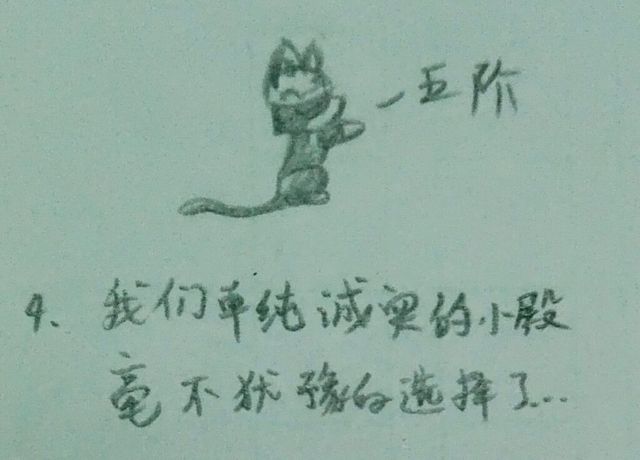 一五阶
4、我们单纯诚实的小殿
毫不犹豫的选择了...